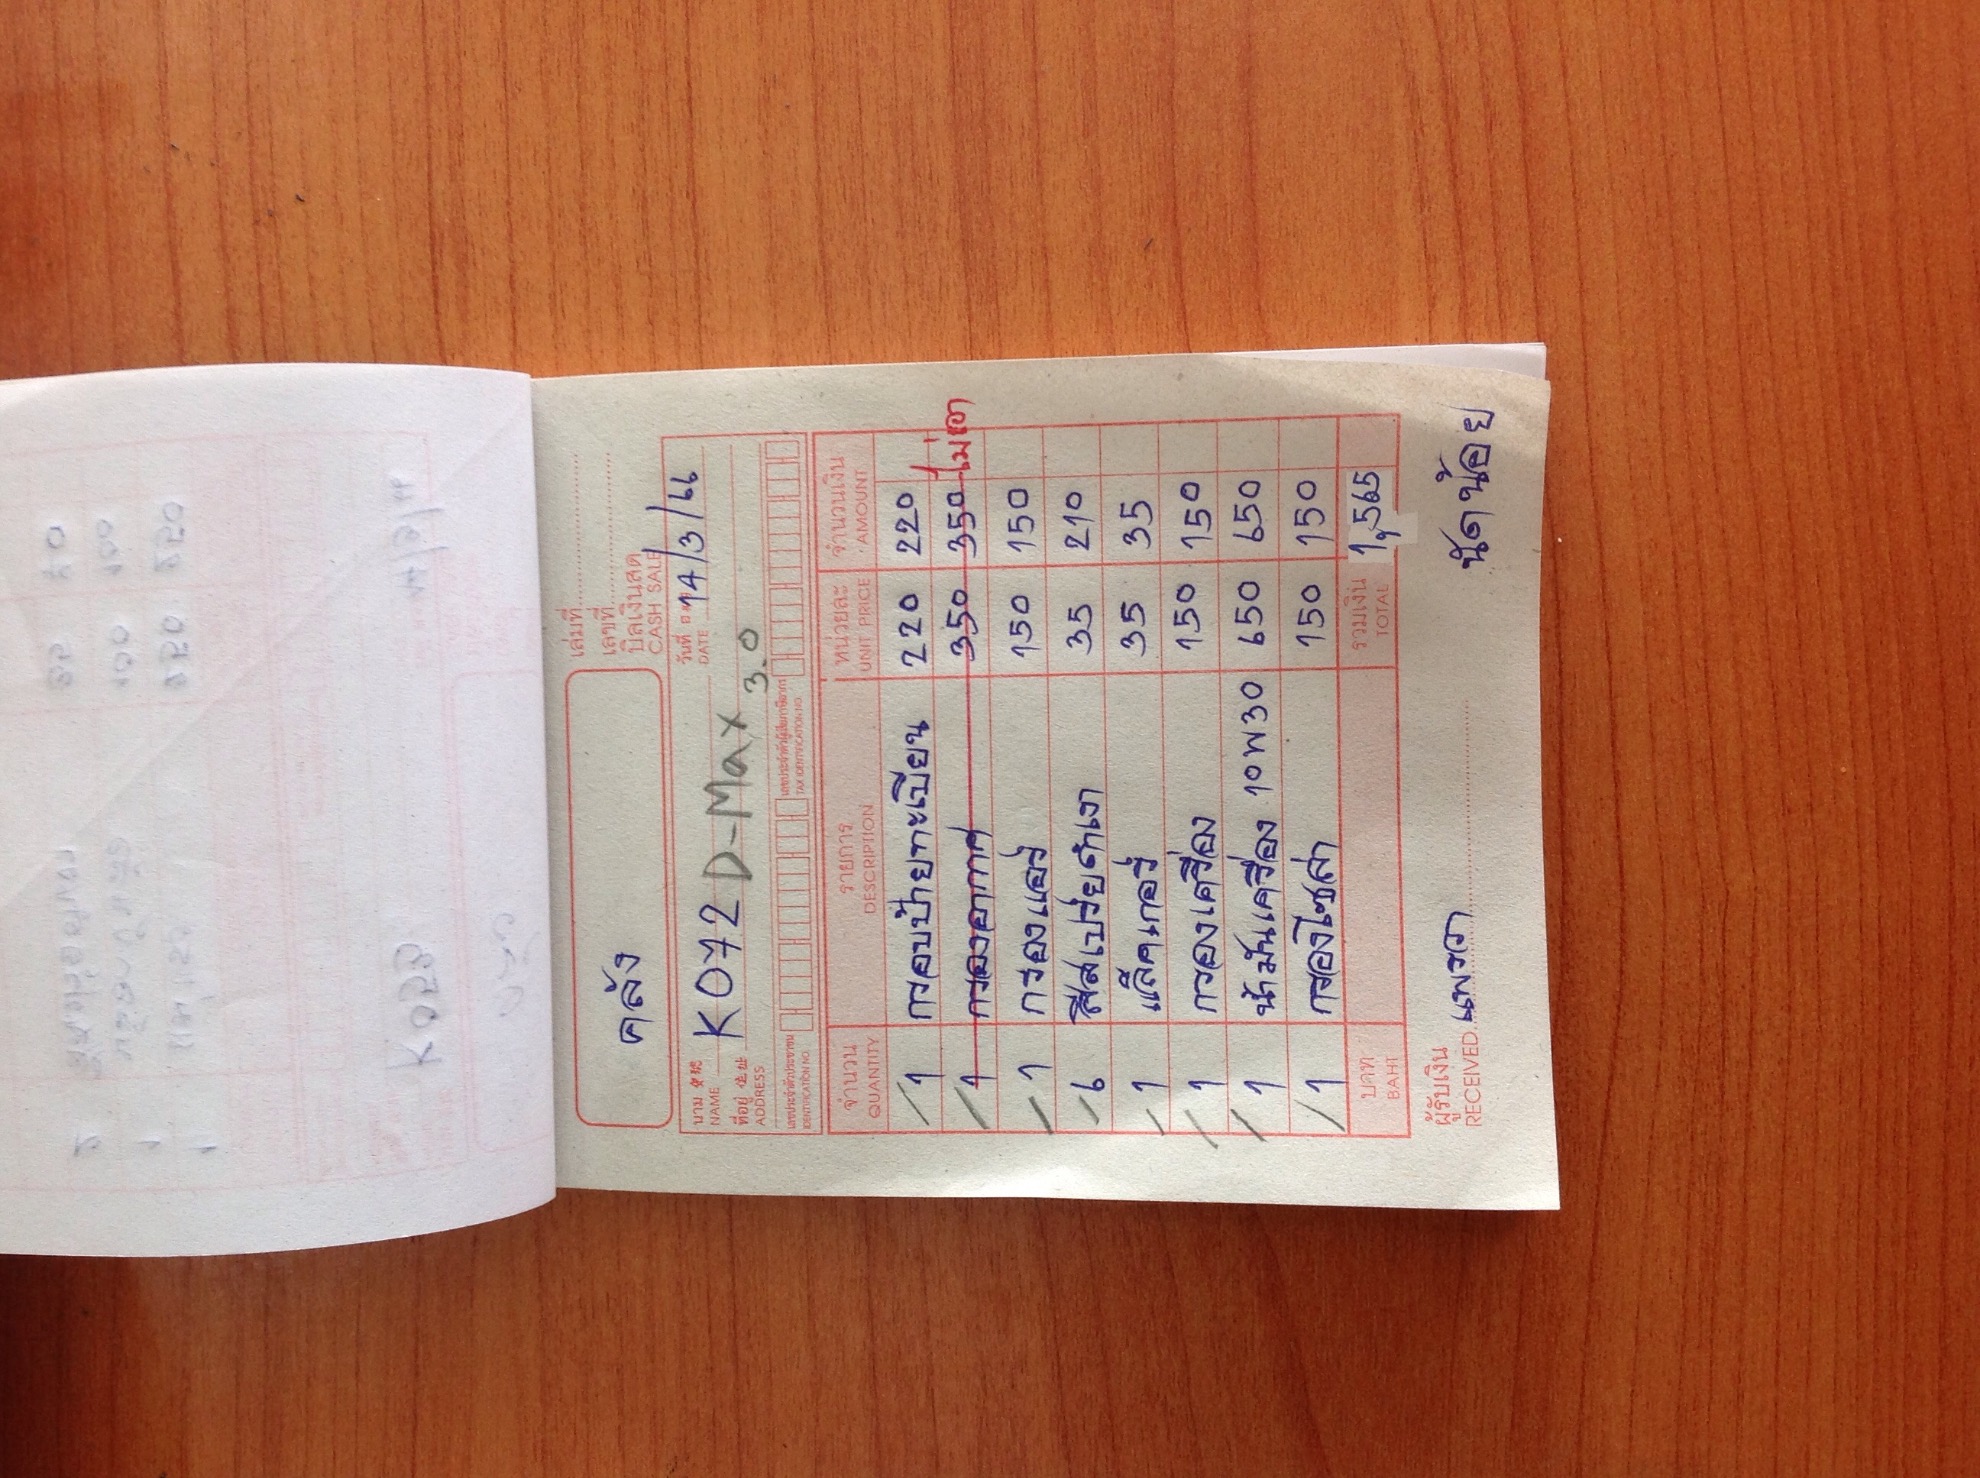 เล่มที่
เลขที่
บิลเงินสด
CASH SALE
คลัง
นาม
NAME
K072 D-Max
3.0
วันที่
DATE
14/3/66
ที่อยู่
ADDRESS
เลขประจำตัวประชาชน
IDENTIFICATION NO.
เลขประจำตัวผู้เสียภาษีอากร
TAX IDENTIFICATION NO.
จำนวน รายการ หน่วยละ จำนวนเงิน
QUANTITY DESCRIPTION UNIT PRICE AMOUNT
/ 1 กรอบป้ายทะเบียน 220 220
/ 1 กรองอากาศ 350 350 ไม่เอา
/ 1 กรองแอร์ 150 150
/ 6 สีสเปรย์ดำเงา 35 210
/ 1 แล็คเกอร์ 35 35
/ 1 กรองเครื่อง 150 150
/ 1 น้ำมันเครื่อง 10W30 650 650
/ 1 กรองโซล่า 150 150
บาท รวมเงิน 1,565
BAHT TOTAL
ผู้รับเงิน
RECEIVED
แพรวา นัดน้อย
K053